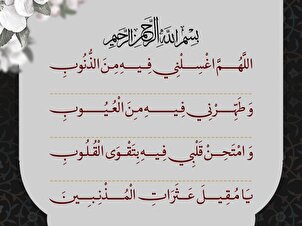 بِسْمِ اللَّهِ الرَّحْمَنِ الرَّحِيمِ
اللَّهُمَّ اغْسِلْنِي فِيهِ مِنَ الذُّنُوبِ
وَ طَهِّرْنِي فِيهِ مِنَ الْعُيُوبِ
وَ امْتَحِنْ قَلْبِي فِيهِ بِتَقْوَى الْقُلُوبِ
يَا مُقِيلَ عَثَرَاتِ الْمُذْنِبِينَ